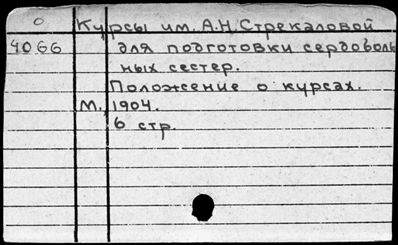 О
Курсы им. А.Н. Стрекаловой
4066
для подготовки сердоволь
ных сестер.
Положение о курсах.
М., 1904.
6 стр.